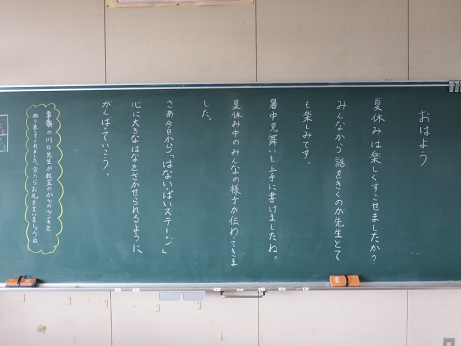 おはよう
夏休みは楽しくすごせましたか?
みんなから話をきくのが先生とて
も楽しみです。
暑中見舞いも上手に書けましたね。
夏休み中のみんなの様子が伝わってきま
した。
さあ今日から「はないっぱいステージ」
心に大きなはなをさかせられるように、
がんばっていこう。
事務の川口先生が教室のかべのペンキを
ぬり直してくれました。会ったらお礼を言いましょうね。